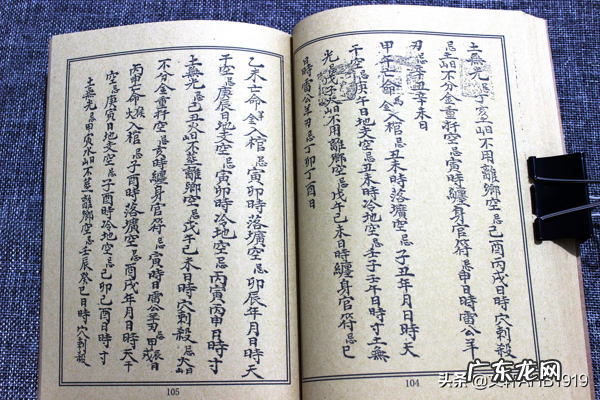 土無光忌丁 山不用離鄉空忌己酉丙戌日時穴刺殺
忌 山不分金重秤空忌寅時纏身官符忌申日時雷公羊
刃忌辛丑辛未日
甲午亡命金入棺忌丑未時落壙空忌子丑年月日時天
干空忌庚午日地支空忌丑未時冷地空忌壬子壬午日時寸土無
光忌戊子 山不用離鄉空忌戊午己未日時纏身官符忌巳
日時雷公羊刃忌丁卯丁酉日
104
乙未亡命金入棺忌寅卯時落壙空忌卯辰年月日時天
干空忌庚辰日地支空忌寅卯時冷地空忌丙寅丙申日時寸
土無光忌己丑 山不 離鄉空忌戊午己未日時穴刺殺忌火山
不分金重秤空忌亥時纏身官符忌寅時日雷公羊刃忌甲辰甲戌日
丙申亡命火入棺忌子酉時落壙空忌酉戌年月日時天干
空忌庚寅日地支空忌子酉時冷地空忌己卯己酉日時寸
土無光忌甲寅水山不 離鄉空忌壬辰癸巳日時穴刺殺
105
广东龙网
头条
1919